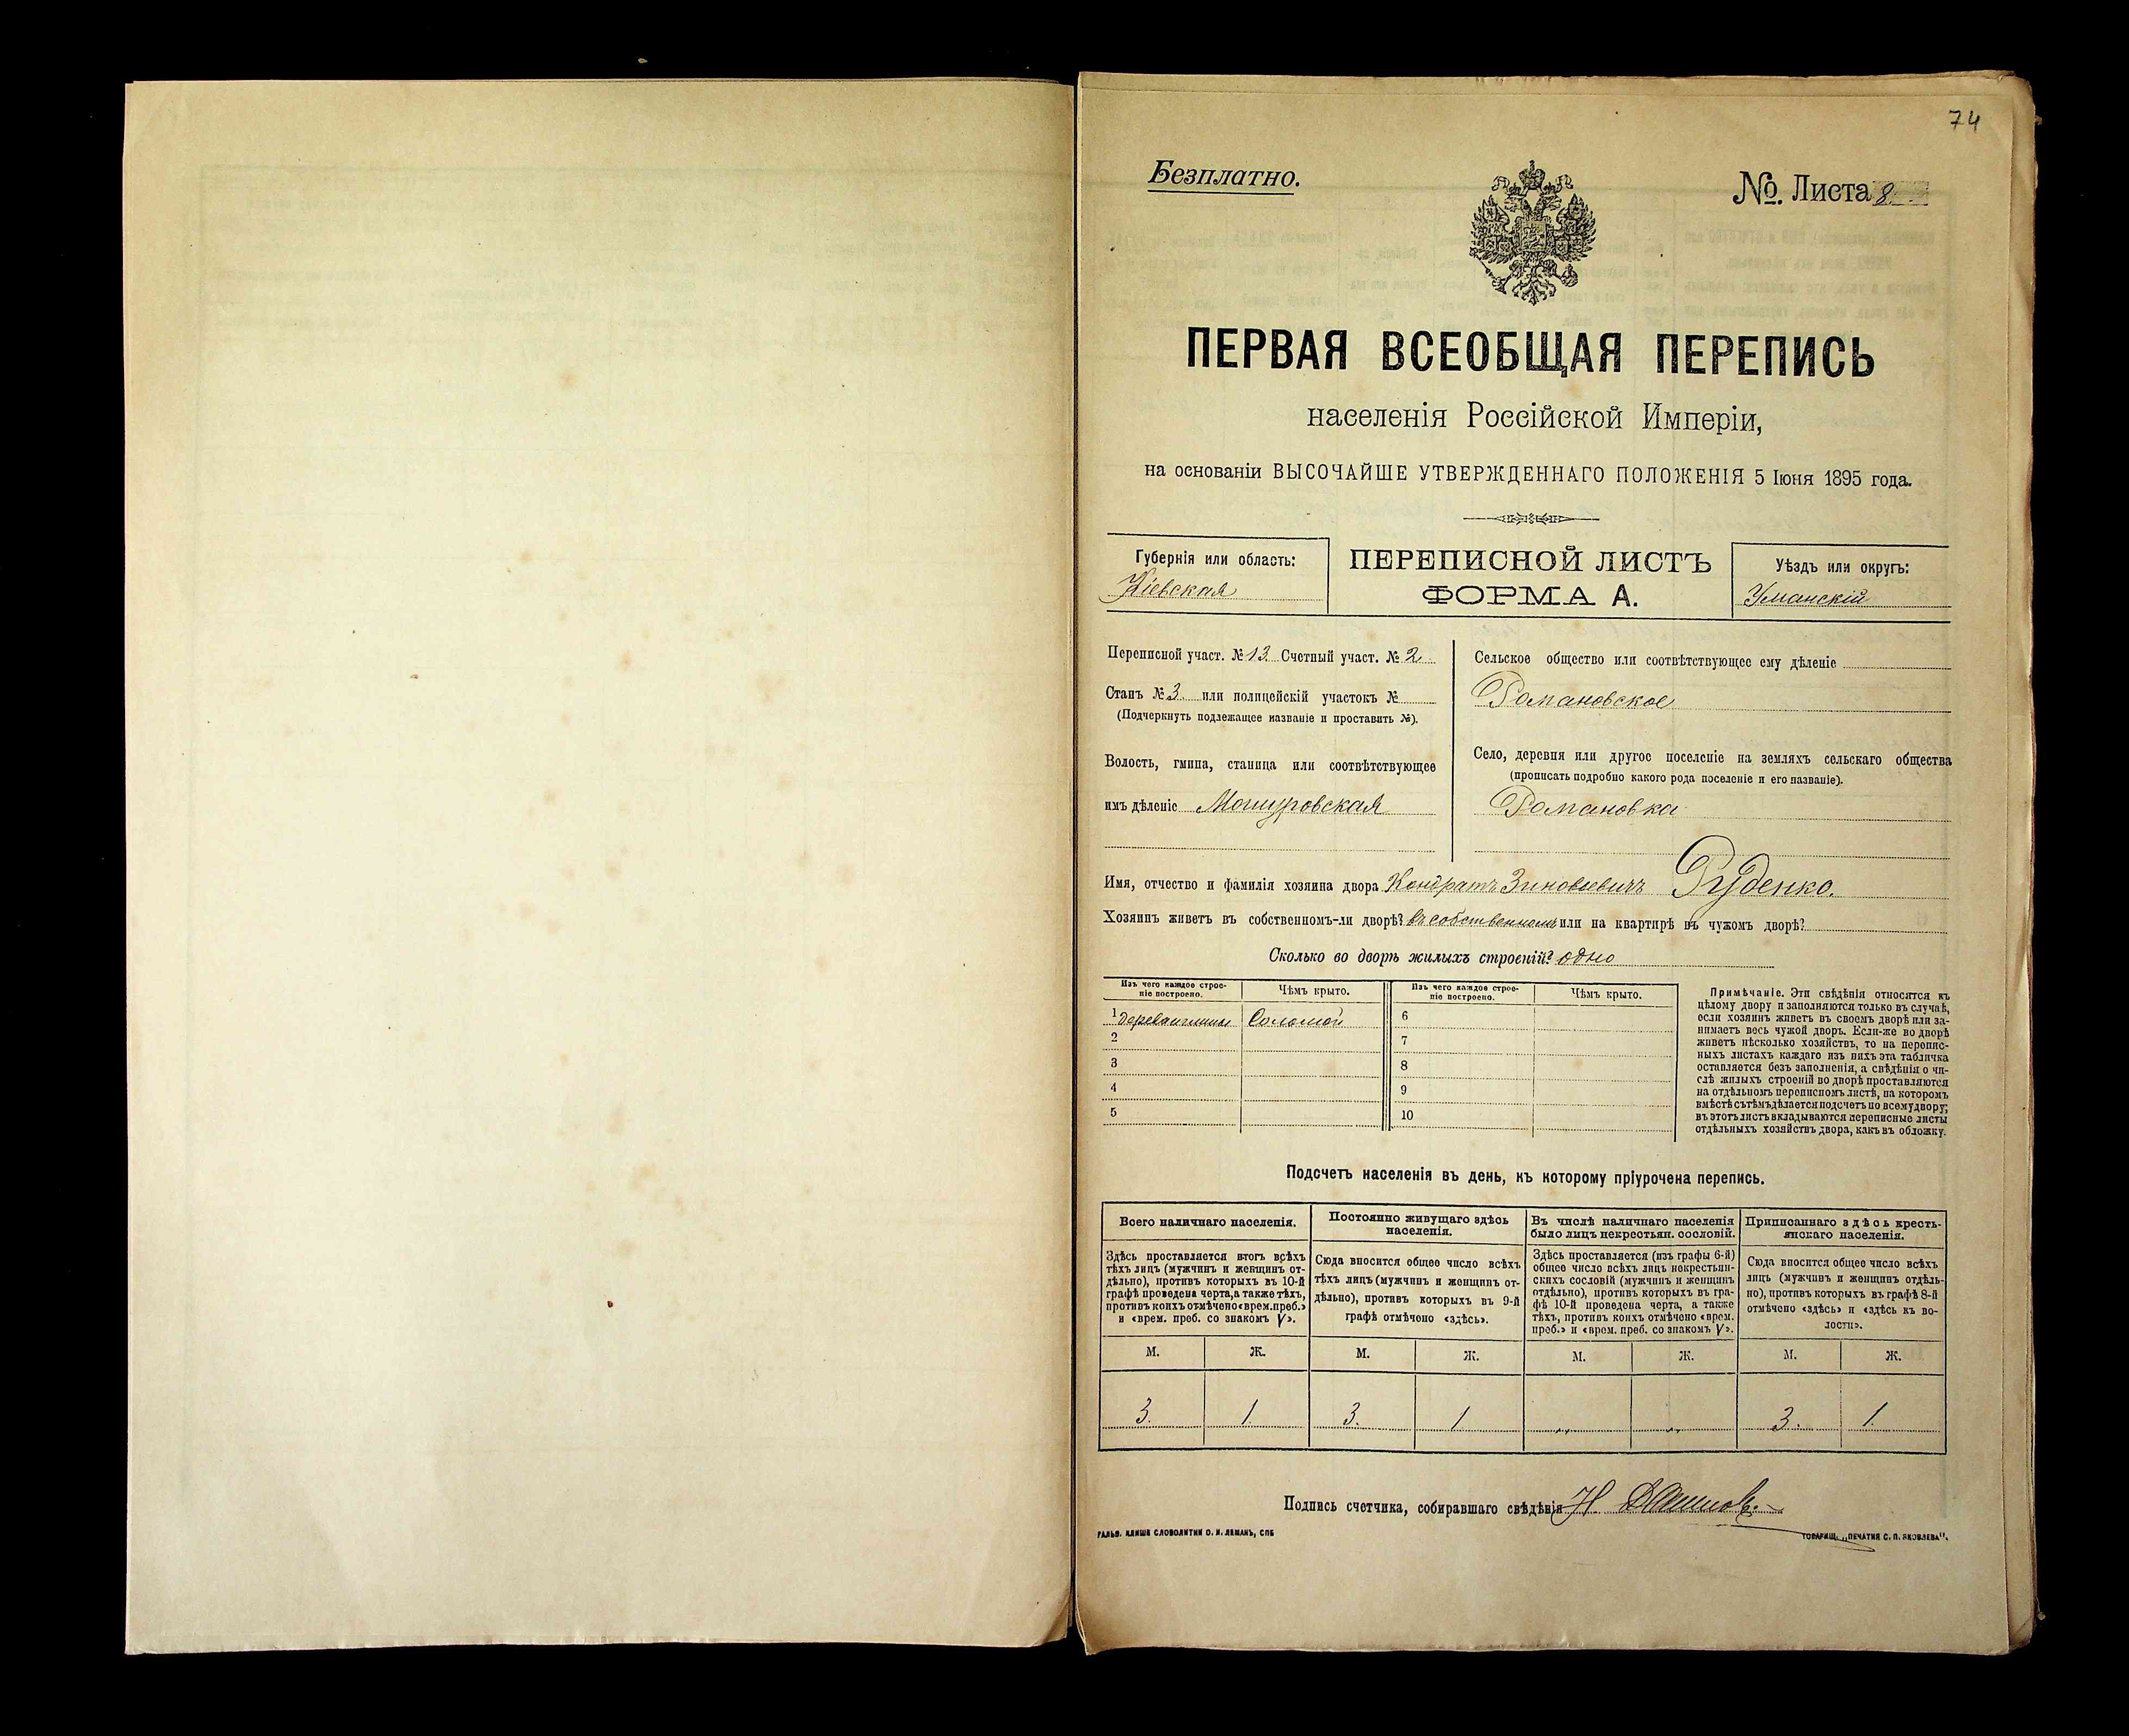 74
Безплатно.
№. Листа 8.
ПЕРВАЯ ВСЕОБЩАЯ ПЕРЕПИСЬ
населенія Россійской Имперіи,
на основаніи ВЫСОЧАЙШЕ УТВЕРЖДЕННАГО ПОЛОЖЕНІЯ 5 Іюня 1895 года.
Губернія или область:
Кіевская
ПЕРЕПИСНОЙ ЛИСТЪ
ФОРМА А.
Уѣздъ или округъ:
Уманскій
Переписной участ. № 13. Счетный участ. № 2
Станъ № 3. или полицейскій участокъ №
(Подчеркнуть подлежащее названіе и проставить №).
Волость, гмина, станица или соотвѣтствующее
имъ дѣленіе Мошуровская
Сельское общество или соотвѣтствующее ему дѣленіе
Романовское
Село, деревня или другое поселеніе на земляхъ сельскаго общества
(прописать подробно какого рода поселеніе и его названіе).
Романовка
Имя, отчество и фамилія хозяина двора Кондратъ Зиновьевичъ Руденко.
Хозяинъ живетъ въ собственномъ-ли дворѣ? въ собственномъ или на квартирѣ въ чужомъ дворѣ?
Сколько во дворѣ жилыхъ строеній? одно
Изъ чего каждое строе-
ніе построено.
Чѣмъ крыто.
1 Соломой
2
3
4
5
Изъ чего каждое строе-
ніе построено.
Чѣмъ крыто.
6
7
8
9
10
Примѣчаніе. Эти свѣдѣнія относятся къ
цѣлому двору и заполняются только въ случаѣ,
если хозяинъ живетъ въ своемъ дворѣ или за-
нимаетъ весь чужой дворъ. Если-же во дворѣ
живетъ нѣсколько хозяйствъ, то на перепис-
ныхъ листахъ каждаго изъ нихъ эта табличка
оставляется безъ заполненія, а свѣдѣнія о чи-
слѣ жилыхъ строеній во дворѣ проставляются
на отдѣльномъ переписномъ листѣ, на которомъ
вмѣстѣ съ тѣмъ дѣлается подсчетъ по всему двору;
въ этотъ листъ вкладываются переписные листы
отдѣльныхъ хозяйствъ двора, какъ въ обложку.
Подсчетъ населенія въ день, къ которому пріурочена перепись.
Всего наличнаго населенія.
Здѣсь проставляется итогъ всѣхъ
тѣхъ лицъ (мужчинъ и женщинъ от-
дѣльно), противъ которыхъ въ 10-й
графѣ проведена черта, а также тѣхъ,
противъ коихъ отмѣчено «врем. преб.»
и «врем. преб. со знакомъ V».
М. Ж.
3. 1.
Постоянно живущаго здѣсь
населенія.
Сюда вносится общее число всѣхъ
тѣхъ лицъ (мужчинъ и женщинъ от-
дѣльно), противъ которыхъ въ 9-й
графѣ отмѣчено «здѣсь».
М. Ж.
3. 1
Въ числѣ наличнаго населенія
было лицъ некрестьян. сословій.
Здѣсь проставляется (изъ графы 6-й)
общее число всѣхъ лицъ некрестьян-
скихъ сословій (мужчинъ и женщинъ
отдѣльно), противъ которыхъ въ гра-
фѣ 10-й проведена черта, а также
тѣхъ, противъ коихъ отмѣчено «врем.
преб.» и «врем. преб. со знакомъ V».
М. Ж.
„ „
Приписаннаго здѣсь кресть-
янскаго населенія.
Сюда вносится общее число всѣхъ
лицъ (мужчинъ и женщинъ отдѣль-
но), противъ которыхъ въ графѣ 8-й
отмѣчено «здѣсь» и «здѣсь къ во-
лости».
М. Ж.
3. 1.
Подпись счетчика, собиравшаго свѣдѣнія Н
ГАЛЬВ. КЛИШЕ СЛОВОЛИТНИ О. И. ЛЕМАНЪ, СПБ
ТОВАРИЩ. „ПЕЧАТНЯ С. П. ЯКОВЛЕВА".